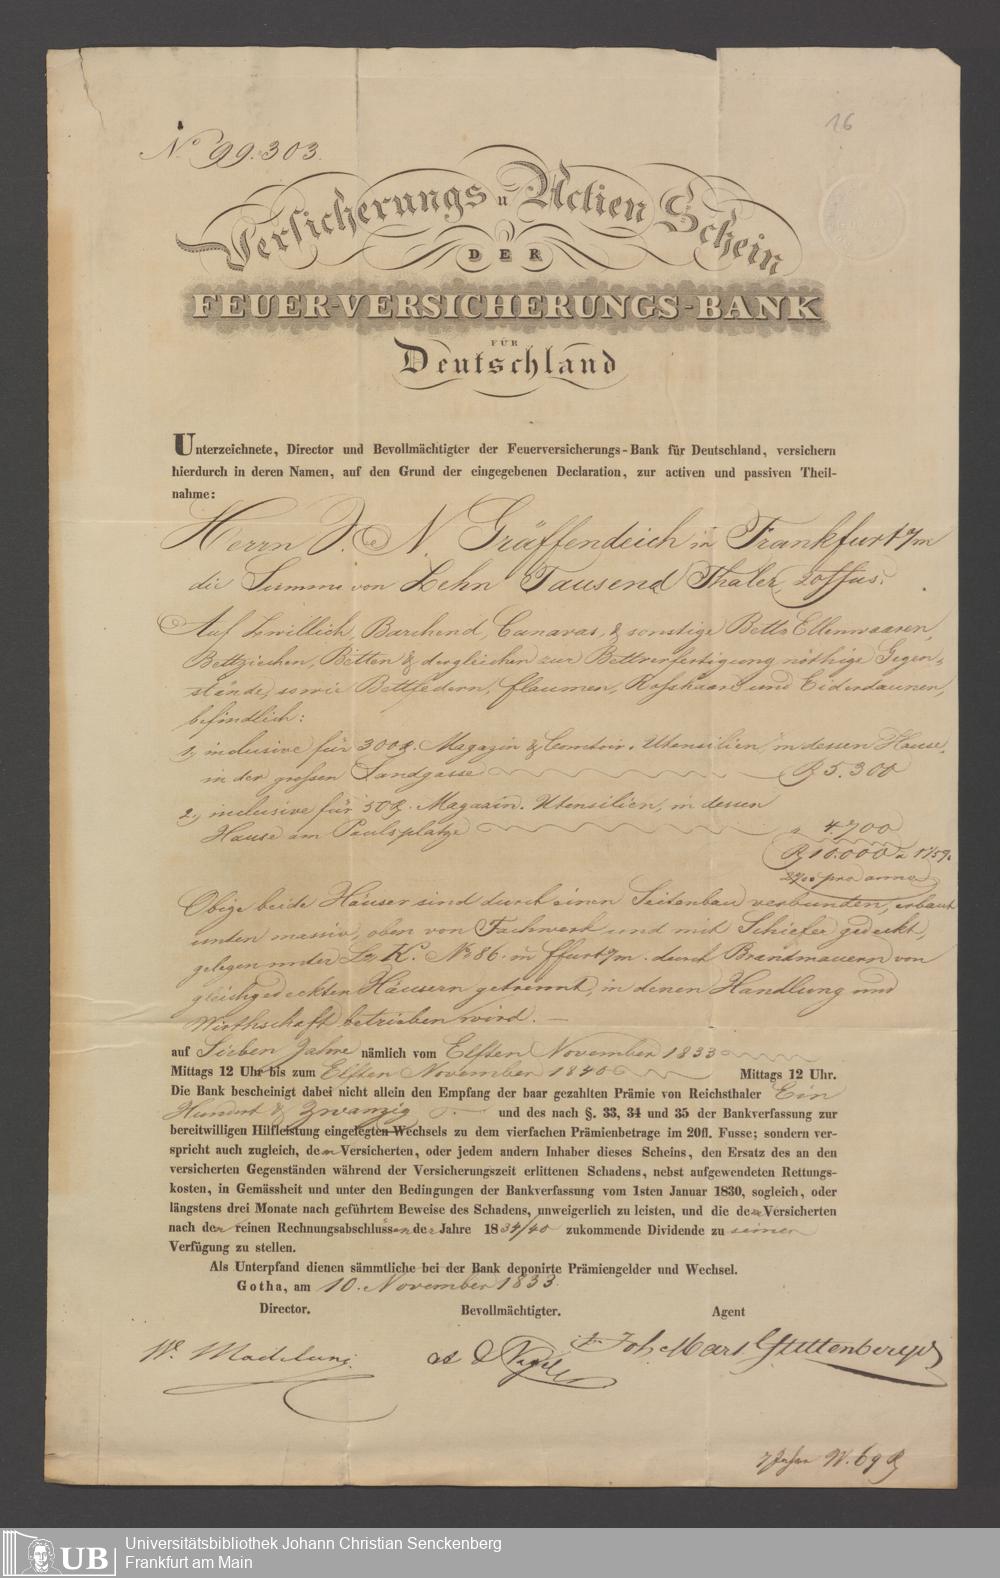 16
No. 99.303.
Versicherungs u Actien Schein
DER
FEUER-VERSICHERUNGS-BANK
FÜR
Deutschland
Unterzeichnete, Director und Bevollmächtigter der Feuerversicherungs-Bank für Deutschland, versichern
hierdurch in deren Namen, auf den Grund der eingegebenen Declaration, zur activen und passiven Theil-
nahme:
Herrn J. N. Gräffendeich in Frankfurt a/m
die Summe von Zehn Tausend Thaler, 20ffus.
Auf Zwillich, Barchend, Canavas, & sonstige Bett Ellenwaaren,
Bettziechen, Betten & dergleichen zur Bettverfertigung nöthige Gegen-
stände, sowie Bettfedern, Flaumen, Rosshaare und Eiderdaunen,
befindlich:
1, inclusive für 300 Magazin & Comtoir. Utensilien, in dessen Hause,
in der grossen Sandgasse 5.300
2., inclusive für 50 Magazin. Utensilien, in dessen
Hause am Paulsplatze " 4.700
10.000
pro anno
Obige beide Häuser sind durch einen Seitenbau verbunden, erbaut
unten massiv, oben von Fachwerk und mit Schiefer gedeckt,
gelegen unter Lr K. No 86. in ffurt a/m. durch Brandmauern von
gleichgedeckten Häusern getrennt, in denen Handlung und
Wirthschaft betrieben wird. —
auf Sieben Jahre nämlich vom Elften November 1833
Mittags 12 Uhr bis zum Elften November 1840 Mittags 12 Uhr.
Die Bank bescheinigt dabei nicht allein den Empfang der baar gezahlten Prämie von Reichsthaler Ein
Hundert & Zwanzig und des nach §. 33, 34 und 35 der Bankverfassung zur
bereitwilligen Hilfleistung eingelegten Wechsels zu dem vierfachen Prämienbetrage im 20fl. Fusse; sondern ver-
spricht auch zugleich, dem Versicherten, oder jedem andern Inhaber dieses Scheins, den Ersatz des an den
versicherten Gegenständen während der Versicherungszeit erlittenen Schadens, nebst aufgewendeten Rettungs-
kosten, in Gemässheit und unter den Bedingungen der Bankverfassung vom 1sten Januar 1830, sogleich, oder
längstens drei Monate nach geführtem Beweise des Schadens, unweigerlich zu leisten, und die dem Versicherten
nach den reinen Rechnungsabschlüssen der Jahre 1834/40 zukommende Dividende zu seiner
Verfügung zu stellen.
Als Unterpfand dienen sämmtliche bei der Bank deponirte Prämiengelder und Wechsel.
Gotha, am 10. November 1833.
Director. Bevollmächtigter. Agent
W. Madelung.
7 Jahre
Universitätsbibliothek Johann Christian Senckenberg
Frankfurt am Main
UB